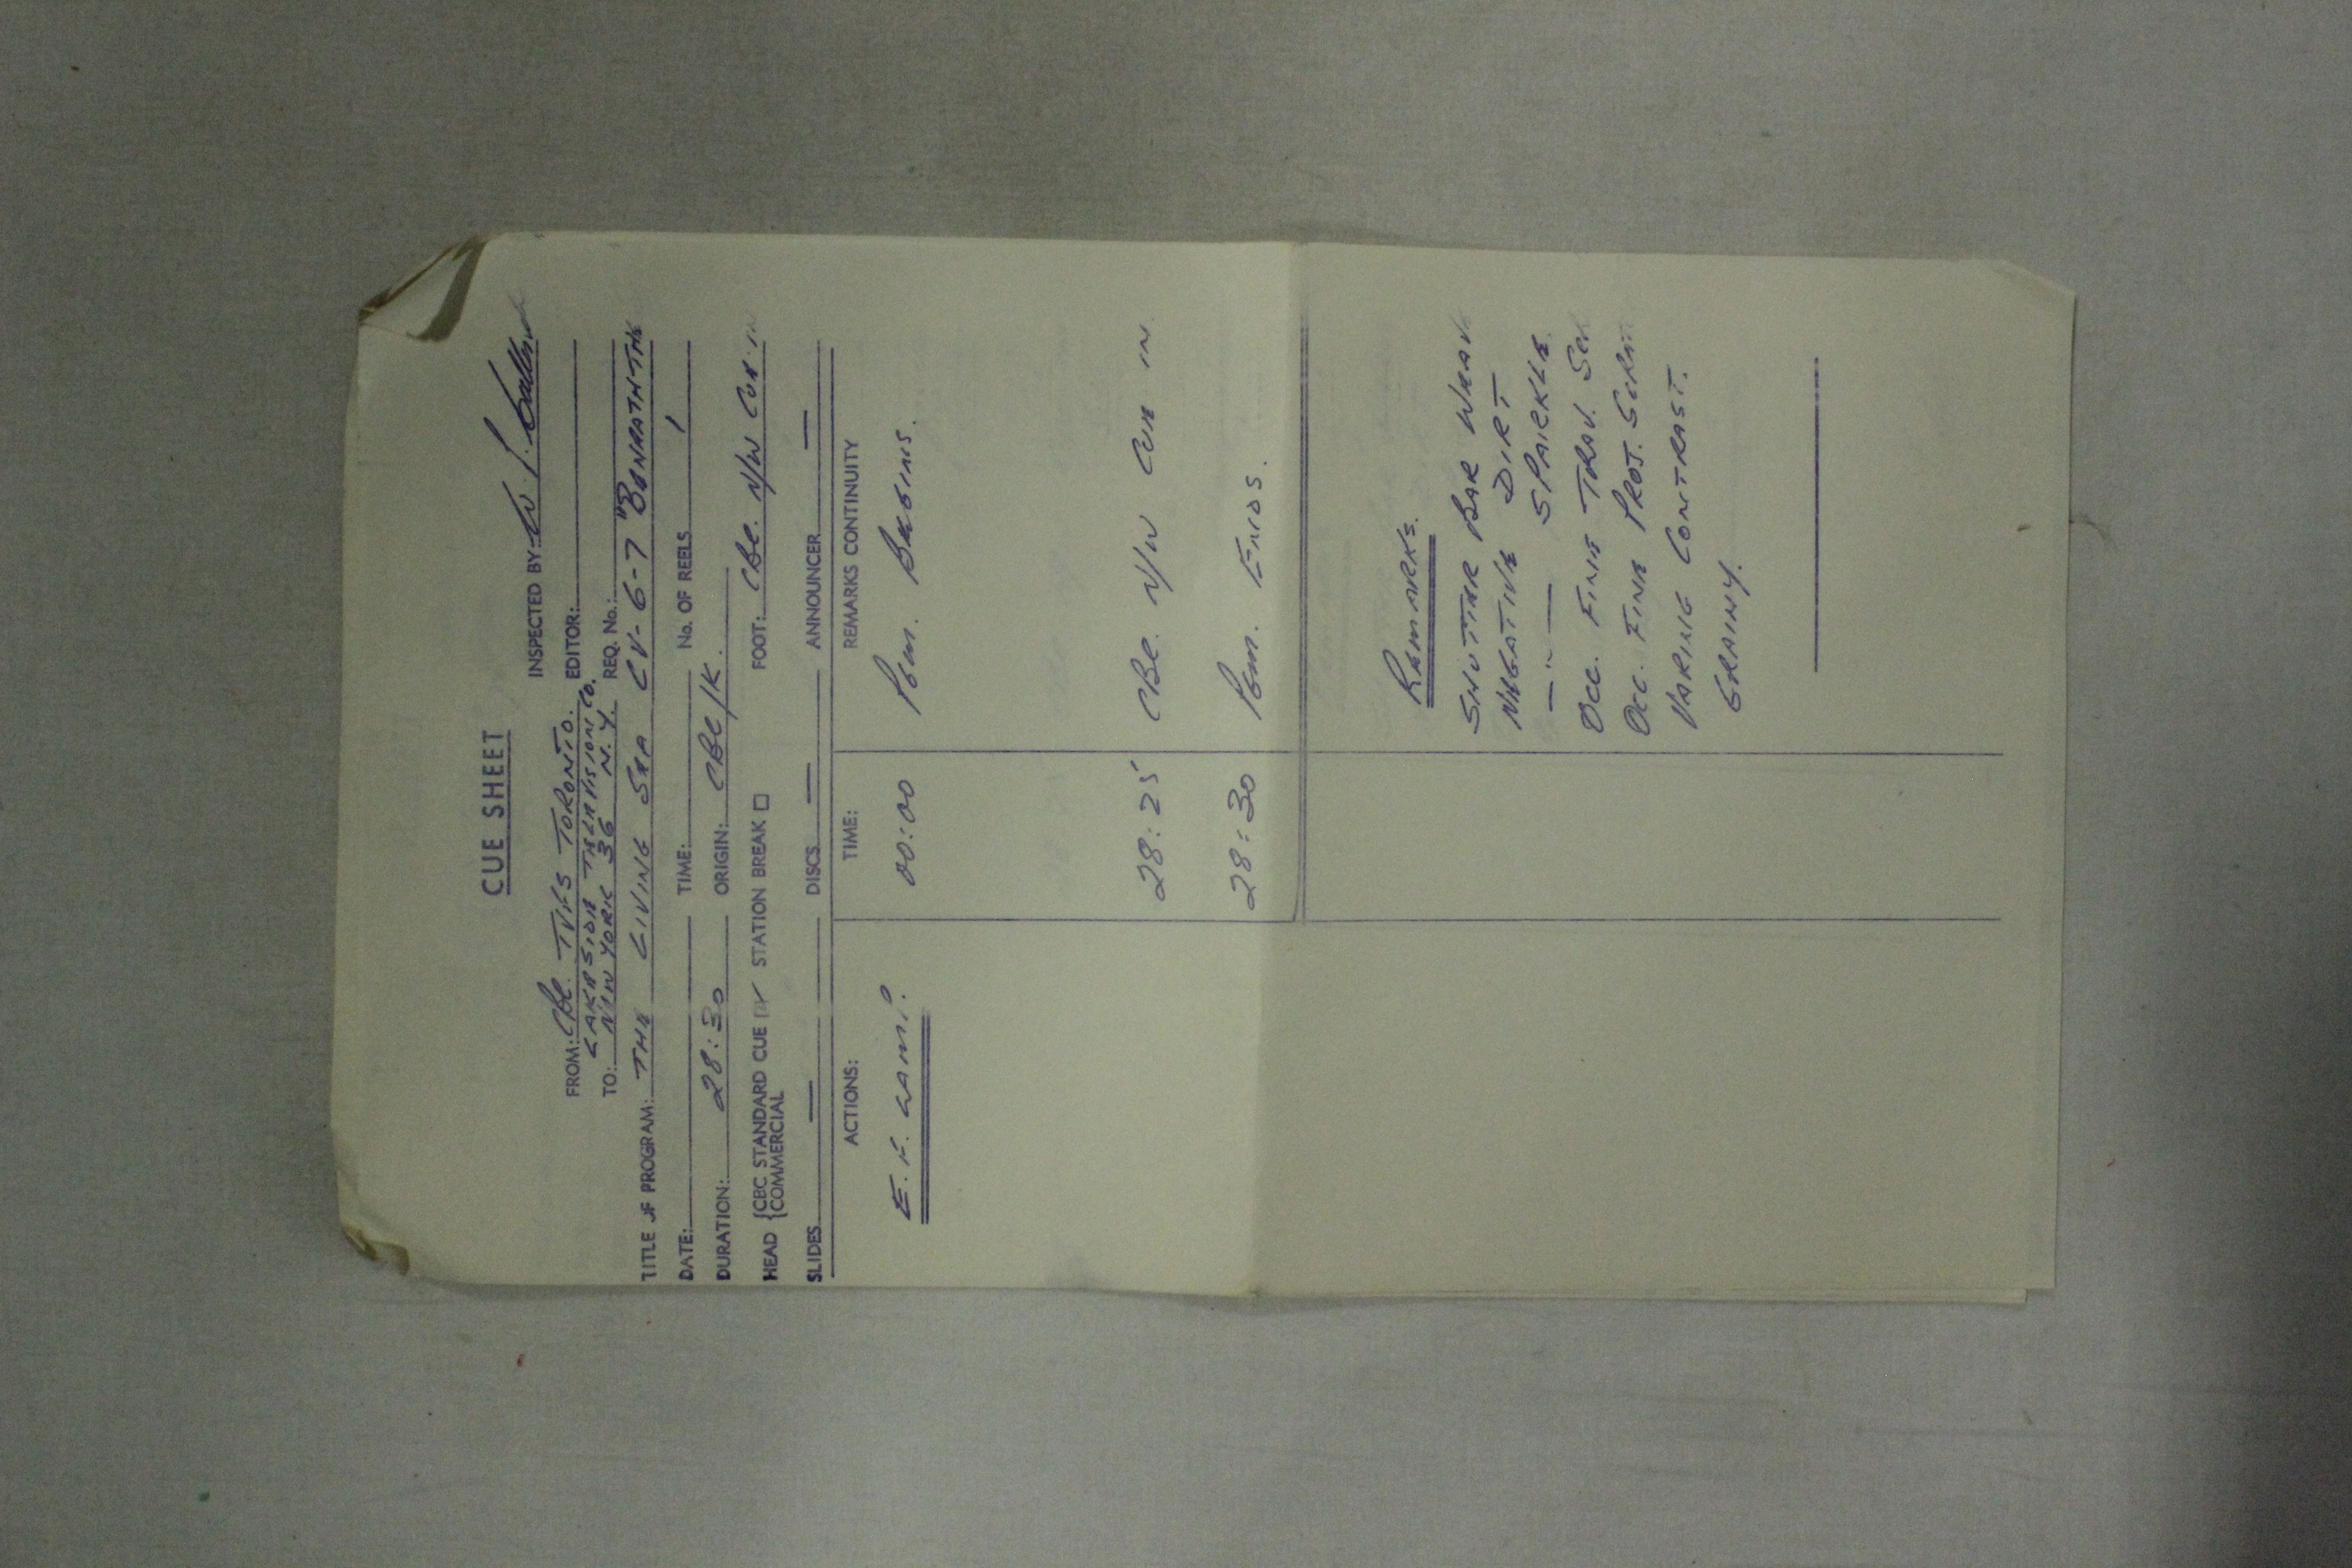 CUE SHEET
INSPECTED BY: W. J.
FROM: CBC. TVFS TORONTO. EDITOR:
LAKESIDE TELEVISION CO.
TO: NEW YORK 36 N.Y. REQ. No.:
TITLE OF PROGRAM: THE LIVING SEA CV-6-7 "BENEATH THE
DATE: TIME: No. OF REELS 1
DURATION: 28:30 ORIGIN: CBC/K.
HEAD {CBC STANDARD CUE ☑ STATION BREAK ☐ FOOT: CBC. N/W CUE IN
{COMMERCIAL
SLIDES — DISCS — ANNOUNCER —
ACTIONS: TIME: REMARKS CONTINUITY
E.F. LAMP. 00:00 PGM. BEGINS.
28:25 CBC. N/W CUE IN
28:30 PGM. ENDS.
REMARKS.
SHUTTER BAR WEAV
NEGATIVE DIRT
— " — SPARKLE.
OCC. FINE TRAV. SCR
OCC. FINE PROJ. SCRA
VARING CONTRAST.
GRAINY.